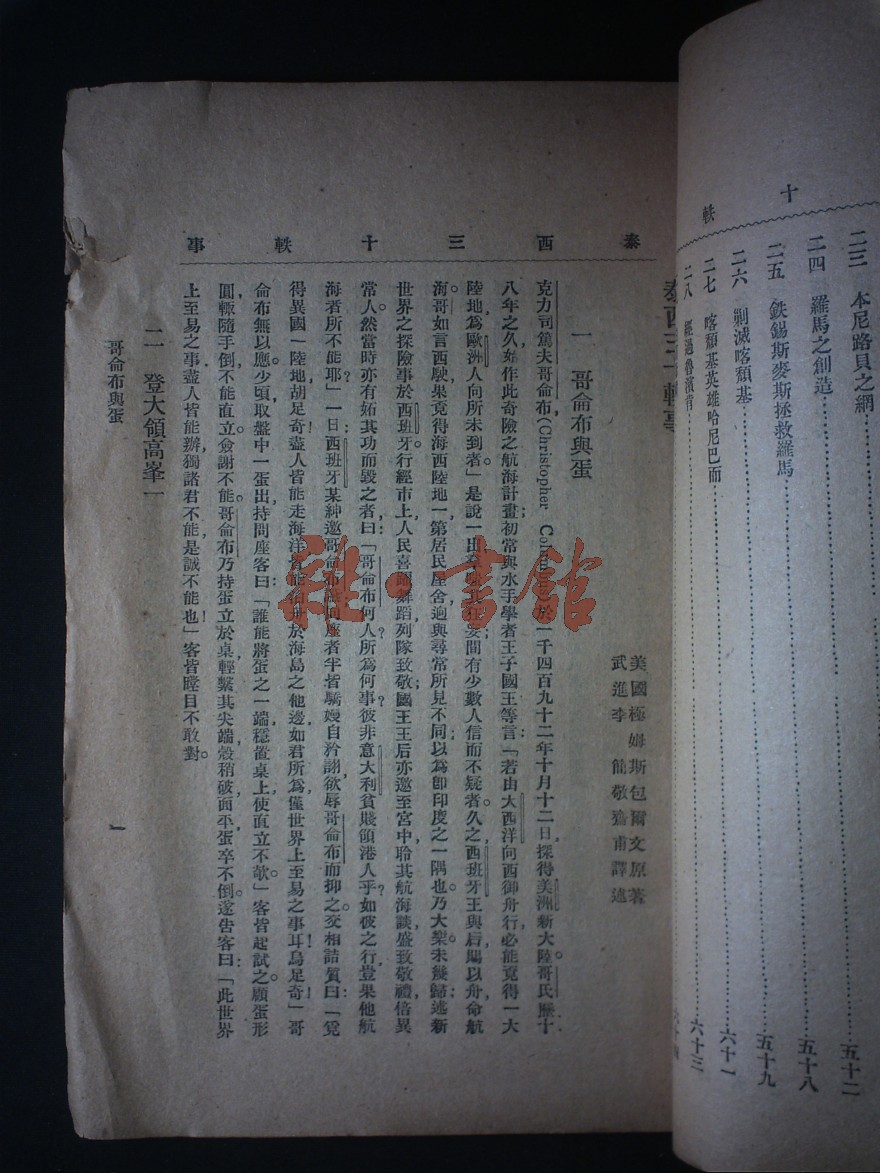 十 軼
二三 本尼路貝之網 五十二
二四 羅馬之創造 五十八
二五 鉄錫斯麥斯拯救羅馬 五十九
二六 剿滅喀頹基 六十一
二七 喀頹基英雄哈尼巴而 六十三
二八 經過魯濱肯
泰西三十軼事
泰西三十軼事
美國極姆斯包爾文原著
武進李 敬 甫譯述
一 哥侖布與蛋
克力司篤夫哥侖布(Christopher Columbus)於一千四百九十二年十月十二日,探得美洲新大陸。哥氏歷十
八年之久,好作此奇險之航海計畫;初常與水手學者王子國王等言:「若由大西洋向西御舟行,必能覓得一大
陸地,爲歐洲人向所未到者」是說一出,羣嗤其狂妄;間有少數人信而不疑者。久之,西班牙王與后賜以舟,命航
海。哥如言西駛,果竟得海西陸地一第居民屋舍,逈與尋常所見不同,以爲即印度之一隅也。乃大樂。未幾,歸述新
世界之探險事於西班牙。行經市上,人民喜躍舞蹈,列隊致敬;國王王后亦邀至宮中,聆其航海談,盛致敬禮,倍異
常人。然當時亦有妬其功而毀之者曰:「哥侖布何人?所爲何事?彼非意大利貧賤領港人乎?如彼之行,豈果他航
海者所不能耶?」一日,西班牙某紳邀哥侖布 同座者半皆驕嫚自矜詡,欲辱哥侖布而抑之。交相詰質曰:「覓
得異國一陸地,胡足奇?盡人皆能走海洋,皆能泊舟於海島之他邊,如君所爲,僅世界上至易之事耳!烏足奇!」哥
侖布無以應。少頃,取盤中一蛋出,持問座客曰:「誰能將蛋之一端,穩置桌上,使直立不欹」客皆起試之。顧蛋形
圓,輙隨手倒,不能直立,僉謝不能。哥侖布乃持蛋立於桌,輕擊其尖端,殼稍破,面平,蛋卒不倒。遂告客曰:「此世界
上至易之事,盡人皆能辦,獨諸君不能,是誠不能也!」客皆瞠目不敢對。
二 登大領高峯一
哥侖布與蛋
一
雜·書館